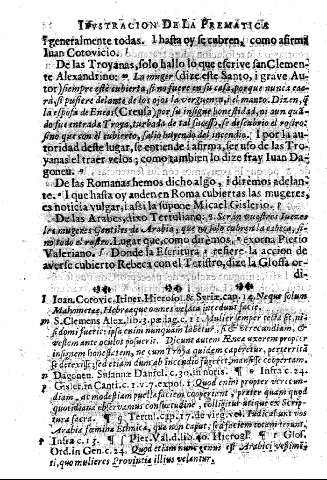 ILVSTRACION DE LA PREMATICA
generalmente todas. I hasta oy se cubren, como afirma
Iuan Cotovicio.
De las Troyanas, solo hallo lo que escrive san Clemente
Alexandrino: La muger (dize este Santo, i grave Autor)
siempre estè cubierta, si no fuere en su casa, porque nunca caerà,
si pusiere delante de los ojos la verguença, i el manto. Dizen, q̃
la esposa de Eneas (Creusa) por su insigne honestidad, ni aun quãdo
fue entrada Troya, turbada de tal suesso, se descubrio el rostro:
sino que con èl cubierto, salio huyendo del incendio. I por la autoridad
deste lugar, se entiende i afirma, ser uso de las Troyanas
el traer velos; como tambien lo dize fray Iuan Dagoneu.
De las Romanas hemos dicho algo, i diremos adelante.
I que hasta oy anden en Roma cubiertas las mugeres,
es noticia vulgar, i assi la supone Micael Gislerio.
De las Arabes, dixo Tertuliano: Serán vuestros Iuezes
las mugeres Gentiles de Arabia, que no solo cubren la cabeça, sino
todo el rostro. Lugar que, como diremos, exorna Pierio
Valeriano. Donde la Escritura refiere la accion de
averse cubierto Rebeca con el Teristro, dize la Glossa ordi-
l Ioan. Cotovic. Itiner. Hierosol. & Syriæ. cap. 14. Neque solum
Mahometæ, Hebreæque omnes velatæ incedunt facie.
m S. Clemens Alex. lib. 3. pædag. c. 11. Mulier semper tecta sit, nisi
domi fuerit: ipsa enim nunquam labetur, & verecundiam, &
vestem ante oculos posuerit. Dicunt autem Eneæ uxorem propter
insignem honestatem, ne cum Troia quidem caperetur, perterritã
se detexisse; sed etiam dum ab incendio fugeret, mansisse coopertã.
n Dagoneu. Susanne Daniel. c. 30. in notis. Infra c. 24.
p Gisler. in Canti. c. 1. v. 7. expos. 1. Quod enim propter verecundiam,
ac modestiam puellæ faciem cooperirent, præter quam quod
quotidiana observamus consuetudine, colligitur utique ex Scriptura
sacra. Tertul. cap. 17. de virg. vel. Iudicabunt vos
Arabiæ fœminæ Ethnicæ, quæ non caput, sed faciem totam tegunt.
Infra c. 13. Pier. Val. d. lib. 40. Hierogl. Glos.
Ord. in Gen. c. 24. Quod etiam nunc genus est Arabici vestimenti,
quo mulieres Provintiæ illius velantur.